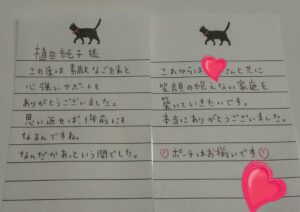 植田純子様
この度は素敵なご縁と
心強いサポートを
ありがとうございました。
思い返せば、1年前にも
なるんですね。
なんだかあっという間でした。
これからは さんと共に
笑顔の絶えない家庭を
築いていきたいです。
本当にありがとうございました。
♡ポーチはお揃いです♡